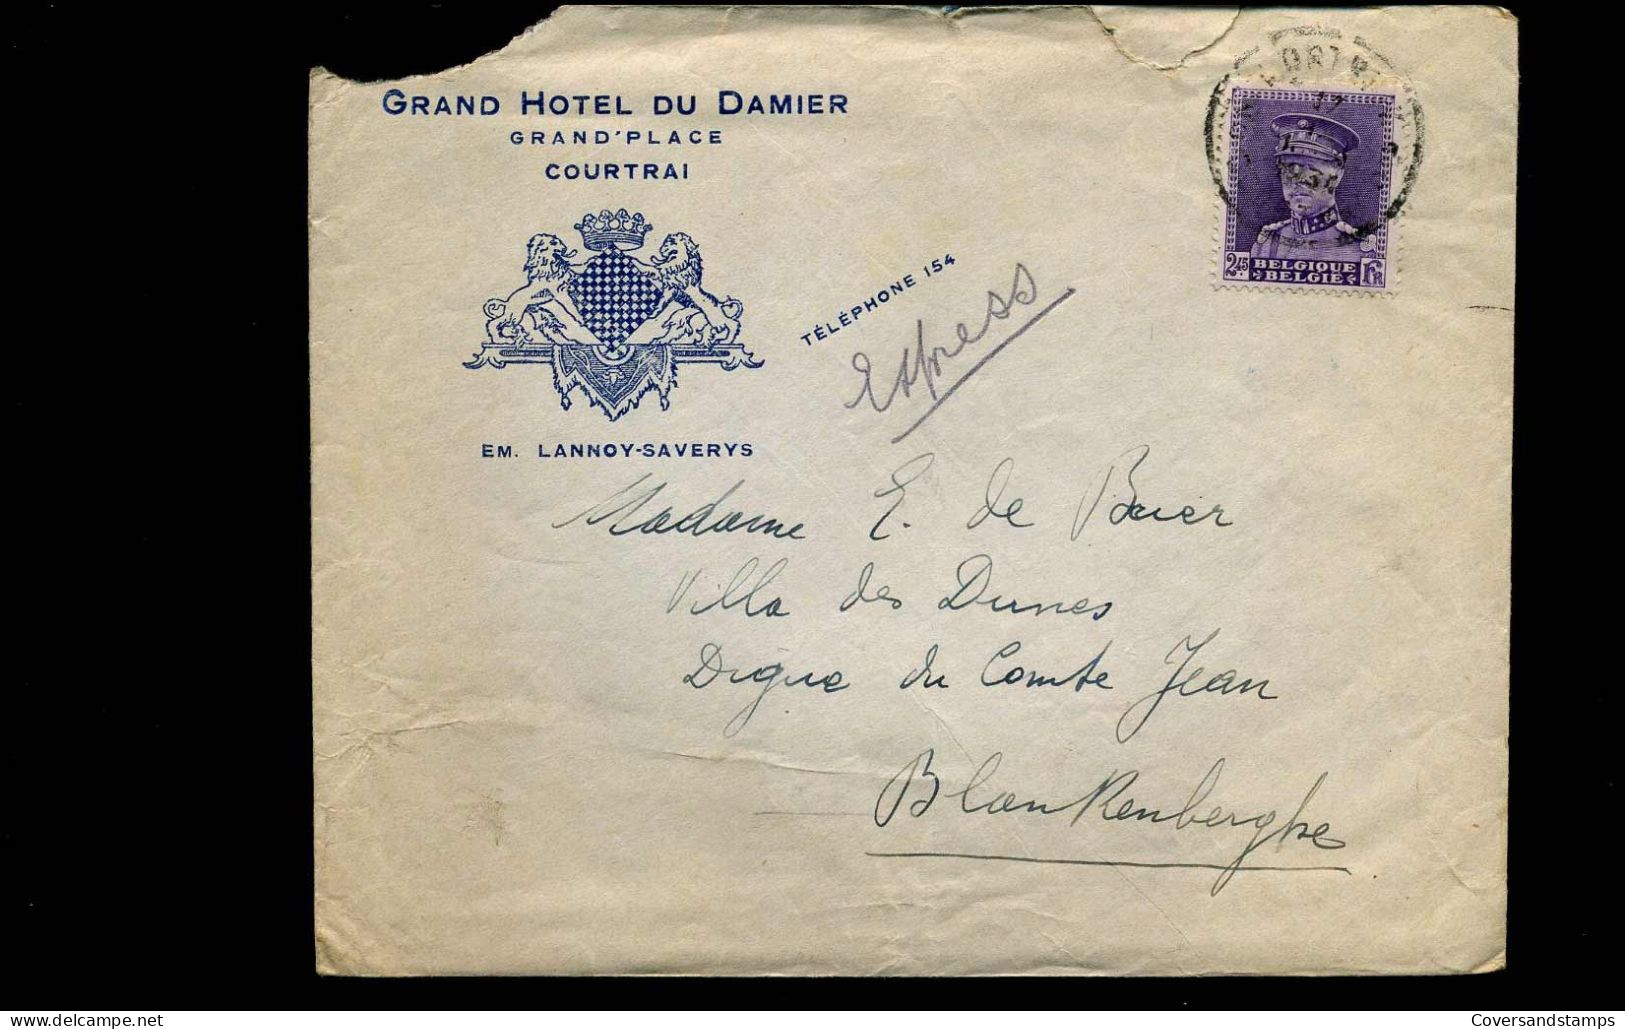 GRAND HOTEL DU DAMIER
GRAND'PLACE
COURTRAI
TÉLÉPHONE 154
Express
EM. LANNOY-SAVERYS
2.45 BELGIQUE FR
BELGIE
Madame E. de Buier
Villa des Dunes
Digue du Comte Jean
Blankenberghe
Coversandstamps